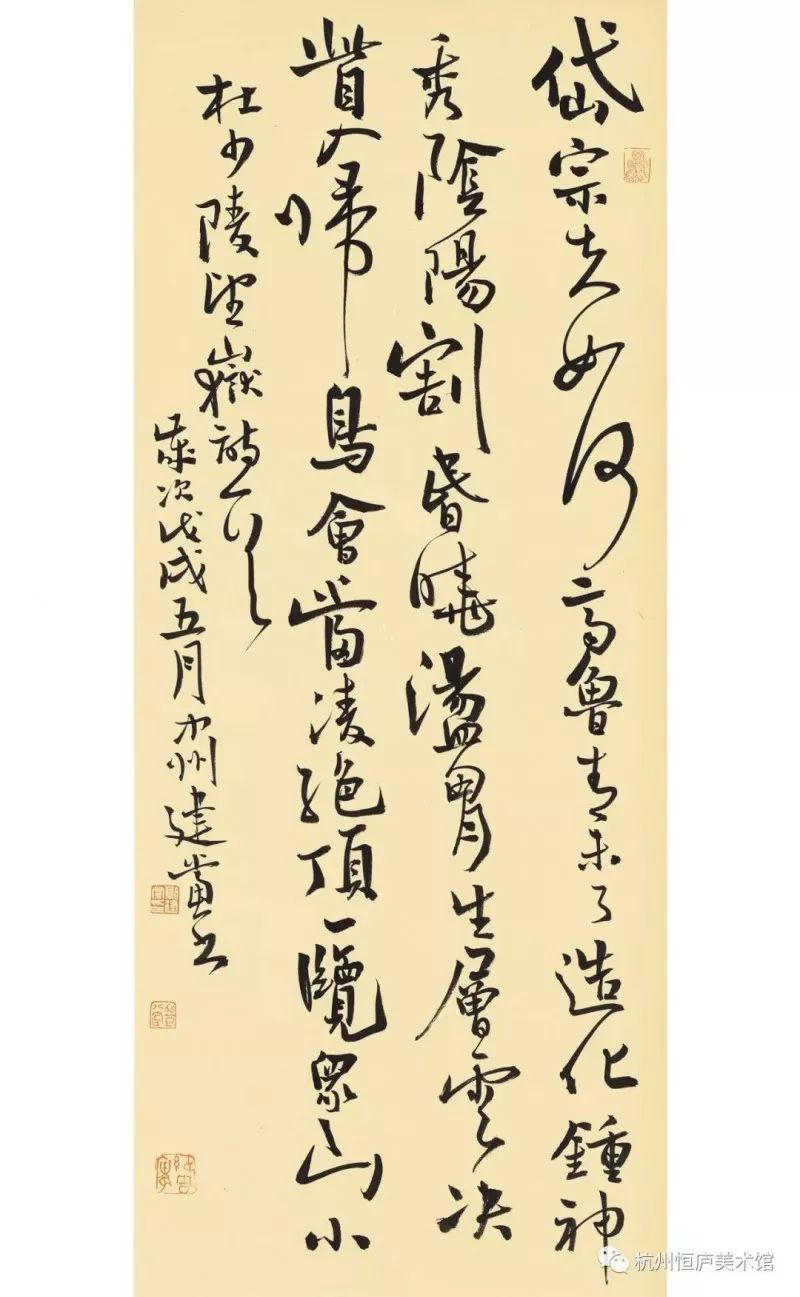 岱宗夫如何齊魯青未了造化鍾神
秀陰陽割昬曉盪胷生層雲決
眥入歸鳥會當凌絕頂一覽眾山小
杜少陵望嶽詩一首
歲次戊戌五月中州建黨書
杭州恒庐美术馆